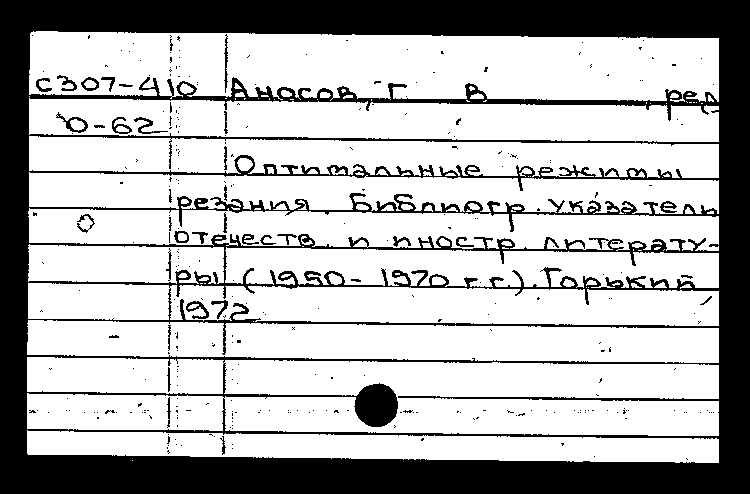 с307-410 Аносов, Г В , ред
О-62
Оптимальные режимы
резания. Библиогр. указатель
отечеств. и иностр. литерату-
ры (1950-1970 г г.). Горький
1972